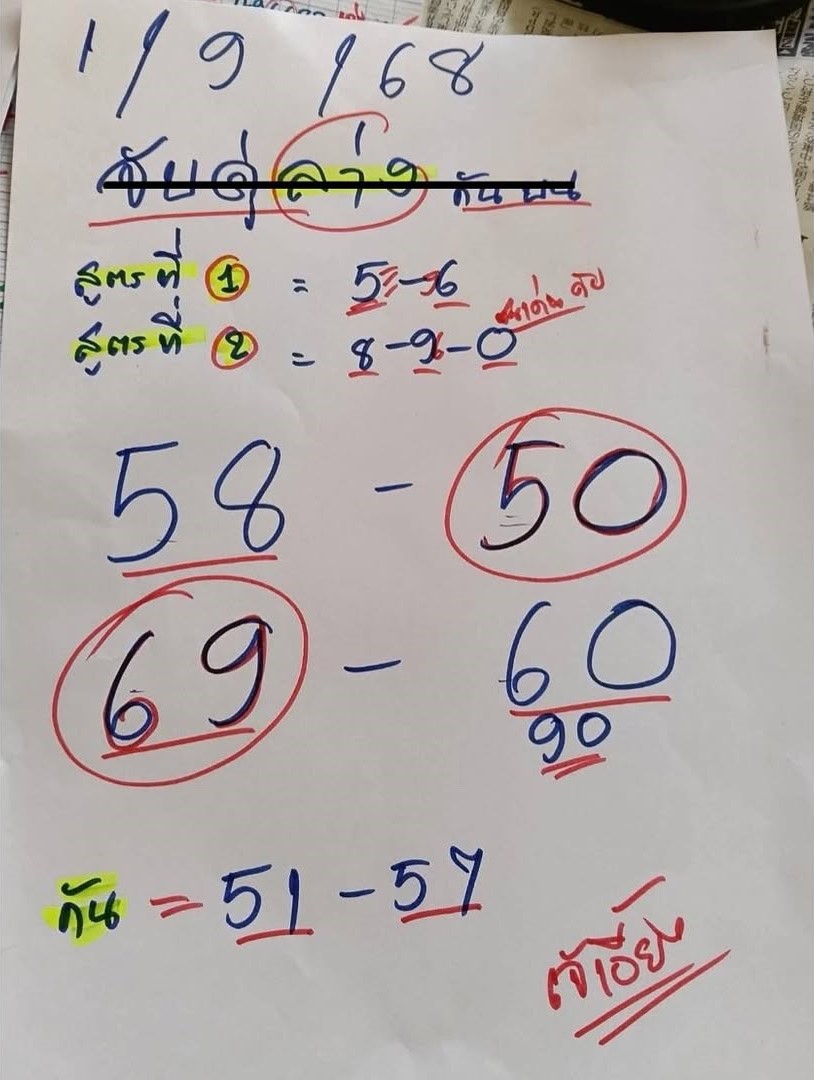 1/9/68
จับคู่ ล่าง กันบน
สูตรที่ 1 = 5-6
สูตรที่ 2 = 8-9-0
58 - 50
69 - 60
90
กัน = 51-57
เจ๊เอี่ยง